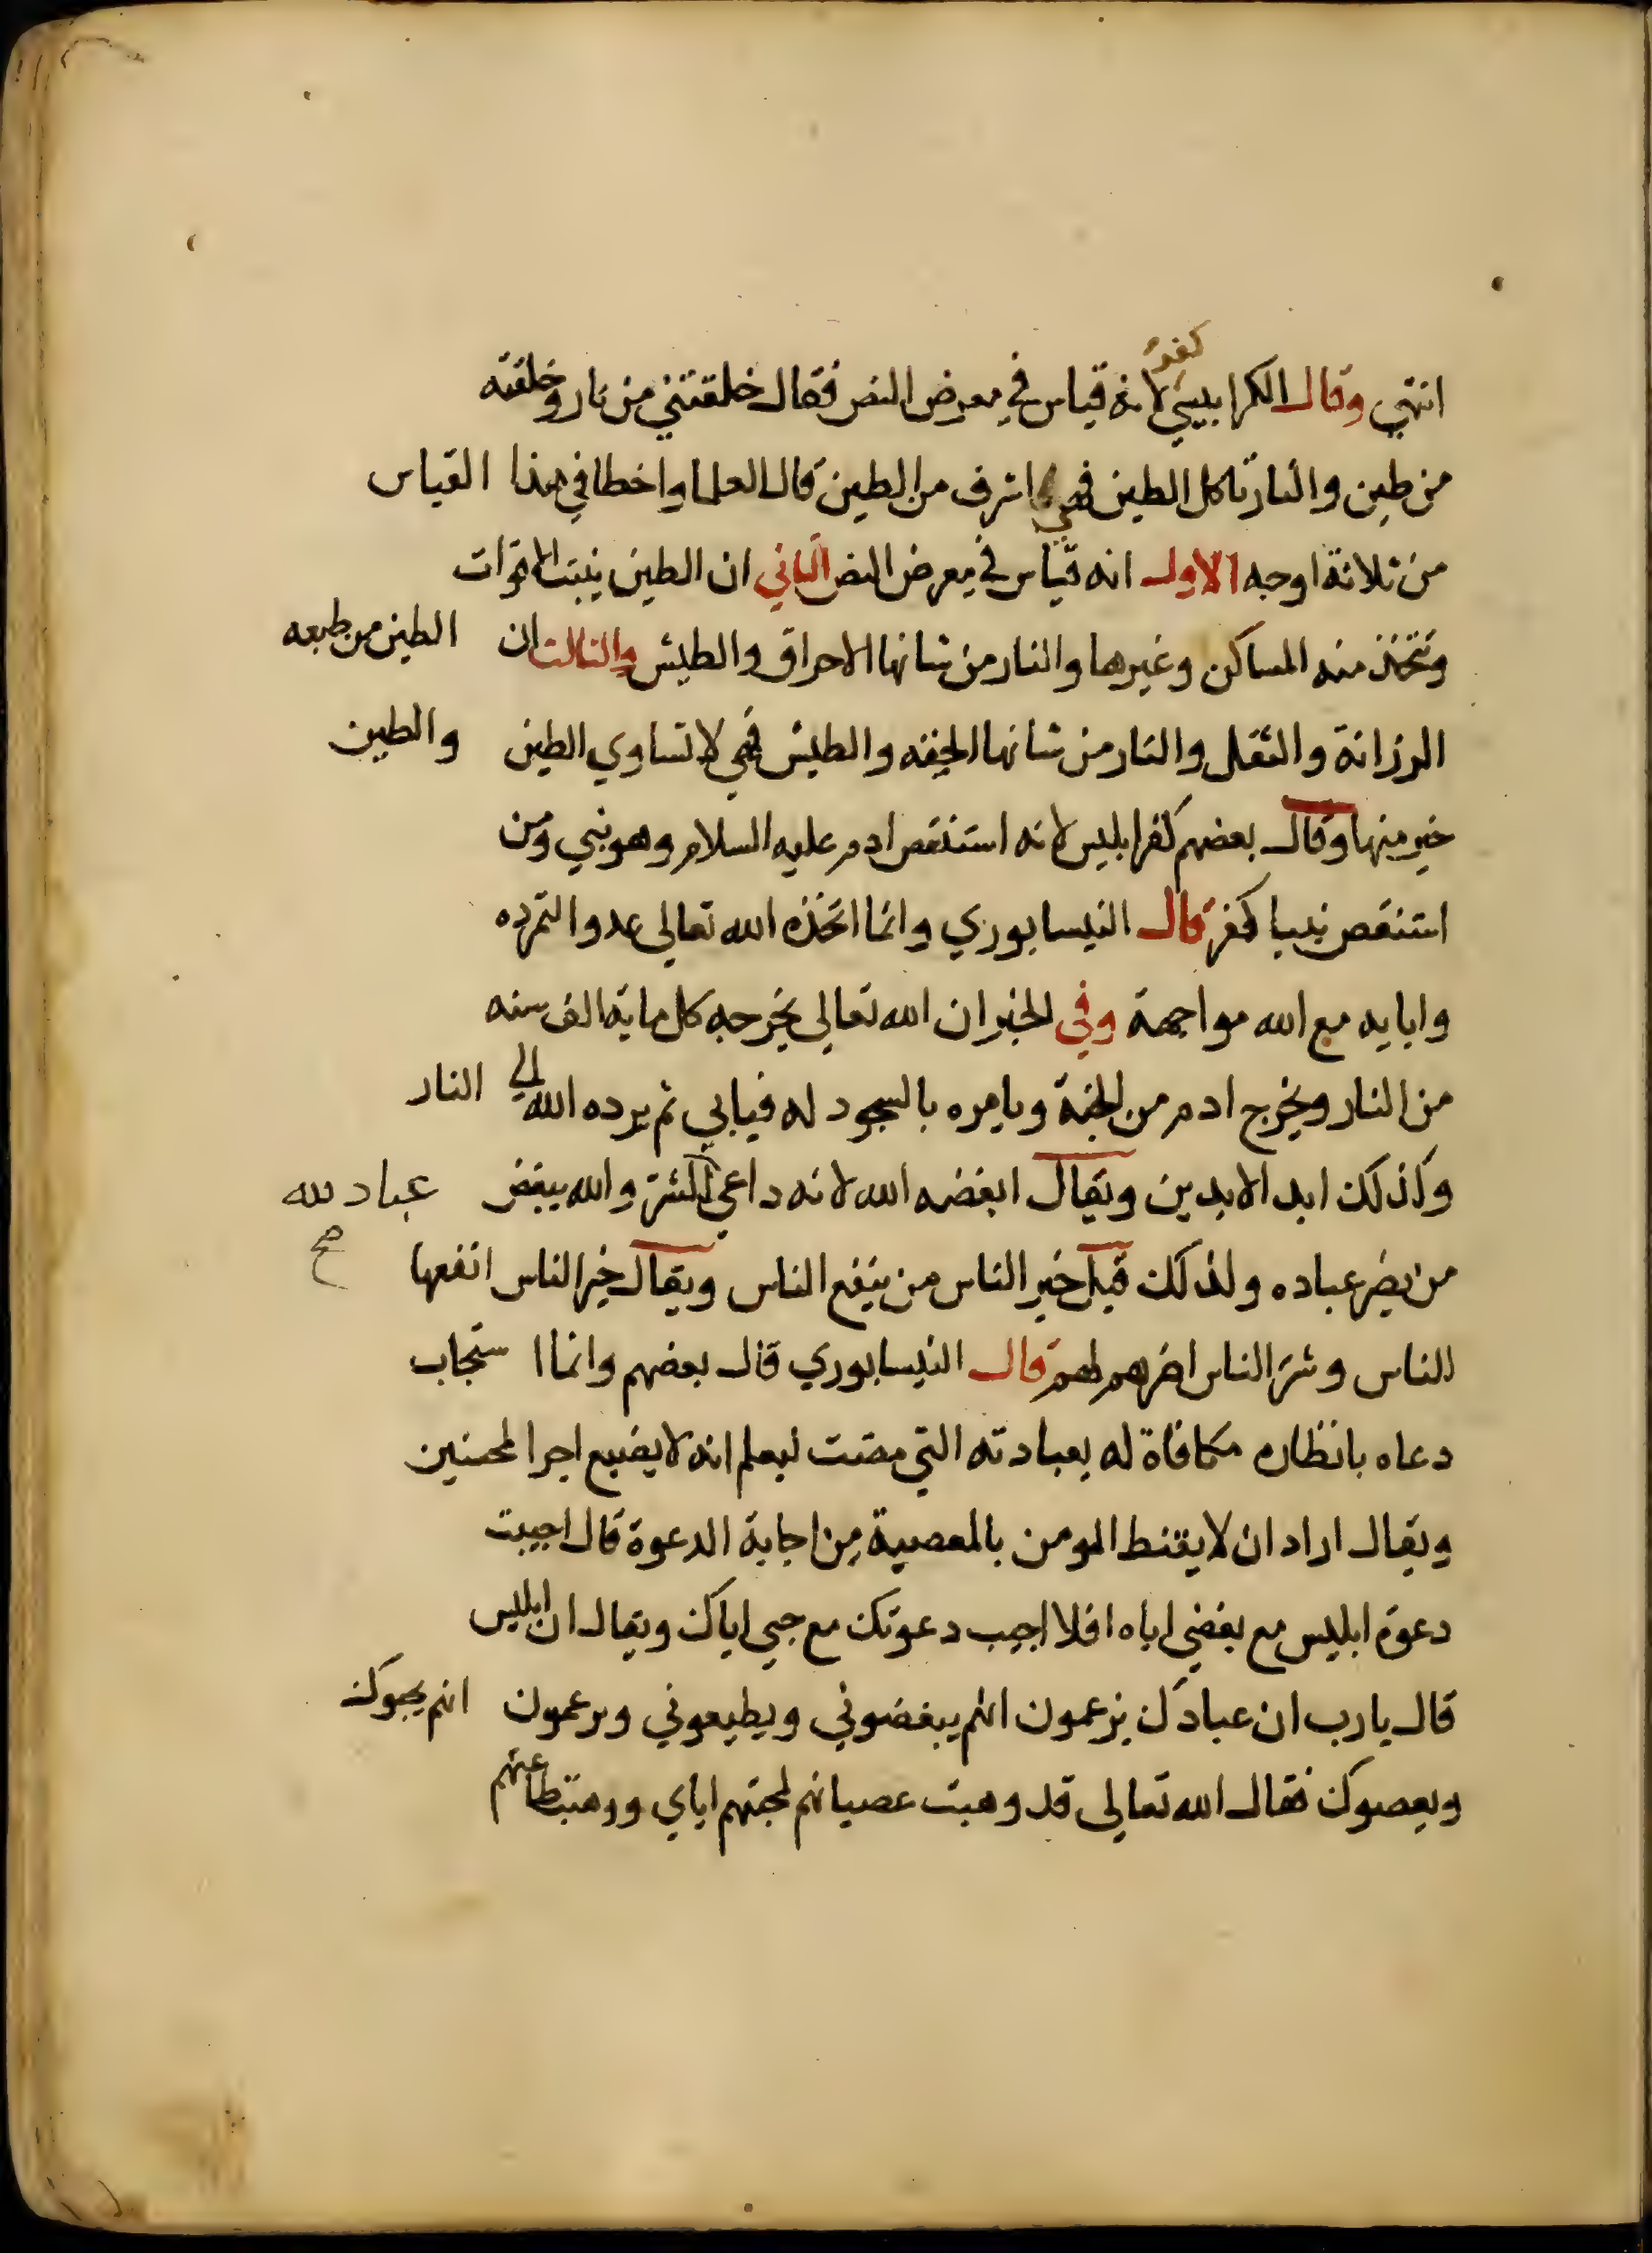 انتهي وقال الكرابيسي كفر لانه قياس في معرض النص فقال خلقتني من نار وخلقته
من طين والنار تاكل الطين فهي اشرف من الطين قال العلما واخطا في هذا القياس
من ثلاثة اوجه الاول انه قياس في معرض النص الثاني ان الطين ينبت الاقوات
وتتخذ منه المساكن وغيرها والنار من شانها الاحراق والطيش والثالث ان الطين من طبعه
الرزانة والثقل والنار من شانها الخفه والطيش فهي لا تساوي الطين والطين
خير منها وقال بعضهم كفر ابليس لانه استنقص ادم عليه السلام وهو نبي ومن
استنقص نبيا كفر قال النيسابوري وانما اتخذه الله تعالى عدوا لتمرده
وابايه مع الله مواجهة وفي الخبر ان الله تعالى يخرجه كل ماية الف سنه
من النار ويخرج ادم من الجنة ويامره بالسجود له فيابي ثم يرده الله الي النار
وكذلك ابد الابدين ويقال ابغضه الله لانه داعي الشر والله يبغض عباد لله
من يضر عباده ولذلك قيل خير الناس من ينفع الناس ويقال خير الناس انفعها صح
للناس وشر الناس اضرهم لهم قال النيسابوري قال بعضهم وانما استجاب
دعاه بانظاره مكافاة له بعبادته التي مضت ليعلم انه لا يضيع اجر المحسنين
ويقال اراد ان لا يقنط المومن بالمعصية من اجابة الدعوة قال اجيبت
دعوة ابليس مع بغضي اياه افلا اجيب دعوتك مع حبي اياك ويقال ان ابليس
قال يارب ان عبادك يزعمون انهم يبغضوني ويطيعوني ويزعمون انهم يحبوك
ويعصوك فقال الله تعالى قد وهبت عصيانهم لمحبتهم اياي ووهبت طاعتهم